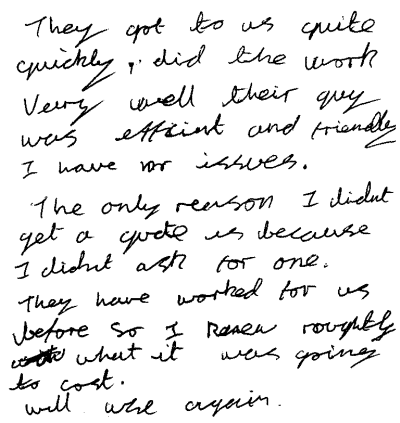 They got to us quite
quickly, did the work
Very well their guy
was efficient and friendly
I have no issues.
The only reason I didnt
get a quote is because
I didnt ask for one.
They have worked for us
before so I knew roughtly
what it was going
to cost.
will use again.